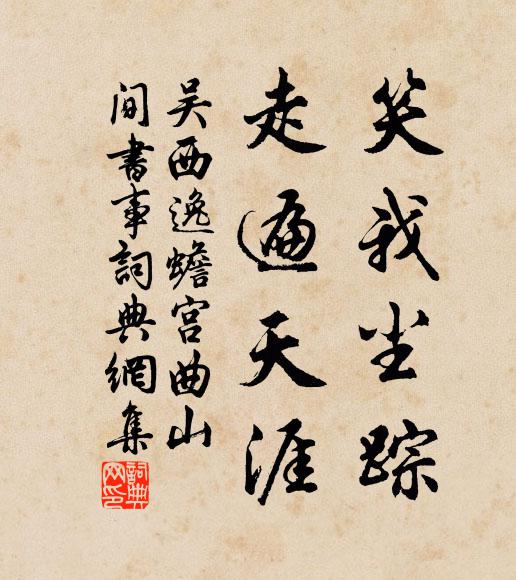 笑我尘踪
走遍天涯
吴西逸蟾宫曲山
间书事詞典網集
詞典网印